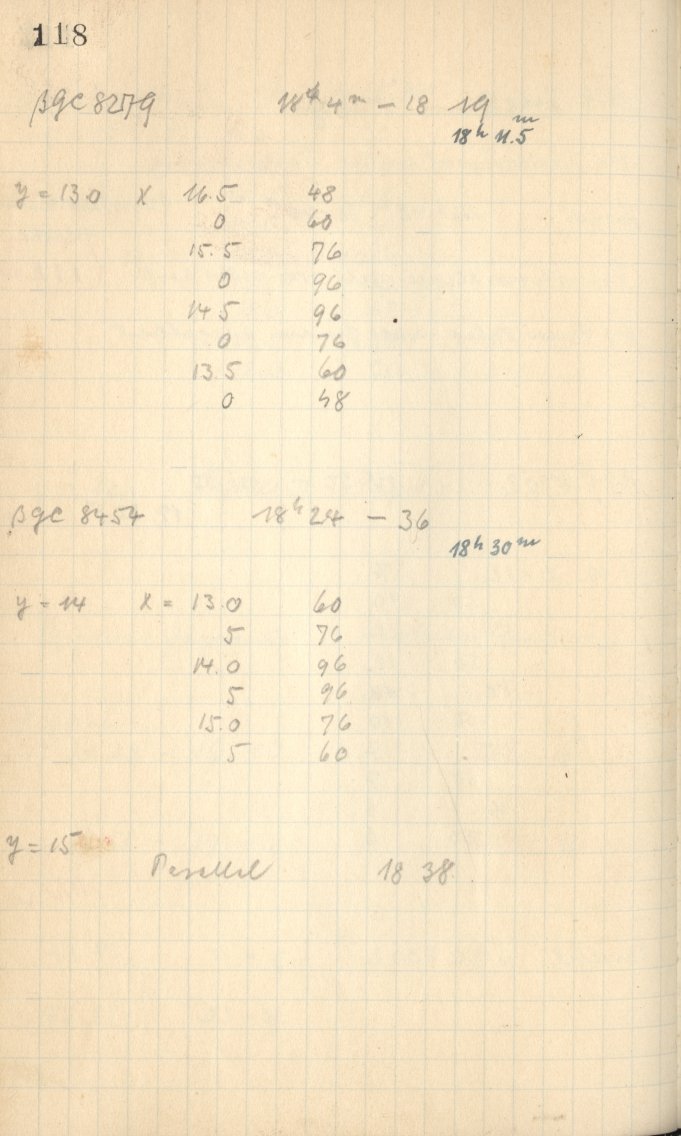 118
βgc 8279 18h 4m – 18 19
18h 11.5m
y = 13.0 x 16.5 48
0 60
15.5 76
0 96
14.5 96
0 76
13.5 60
0 48
βgc 8454 18h 24 – 36
18h 30m
y = 14 x = 13.0 60
5 76
14.0 96
5 96
15.0 76
5 60
y = 15
Parallel 18 38